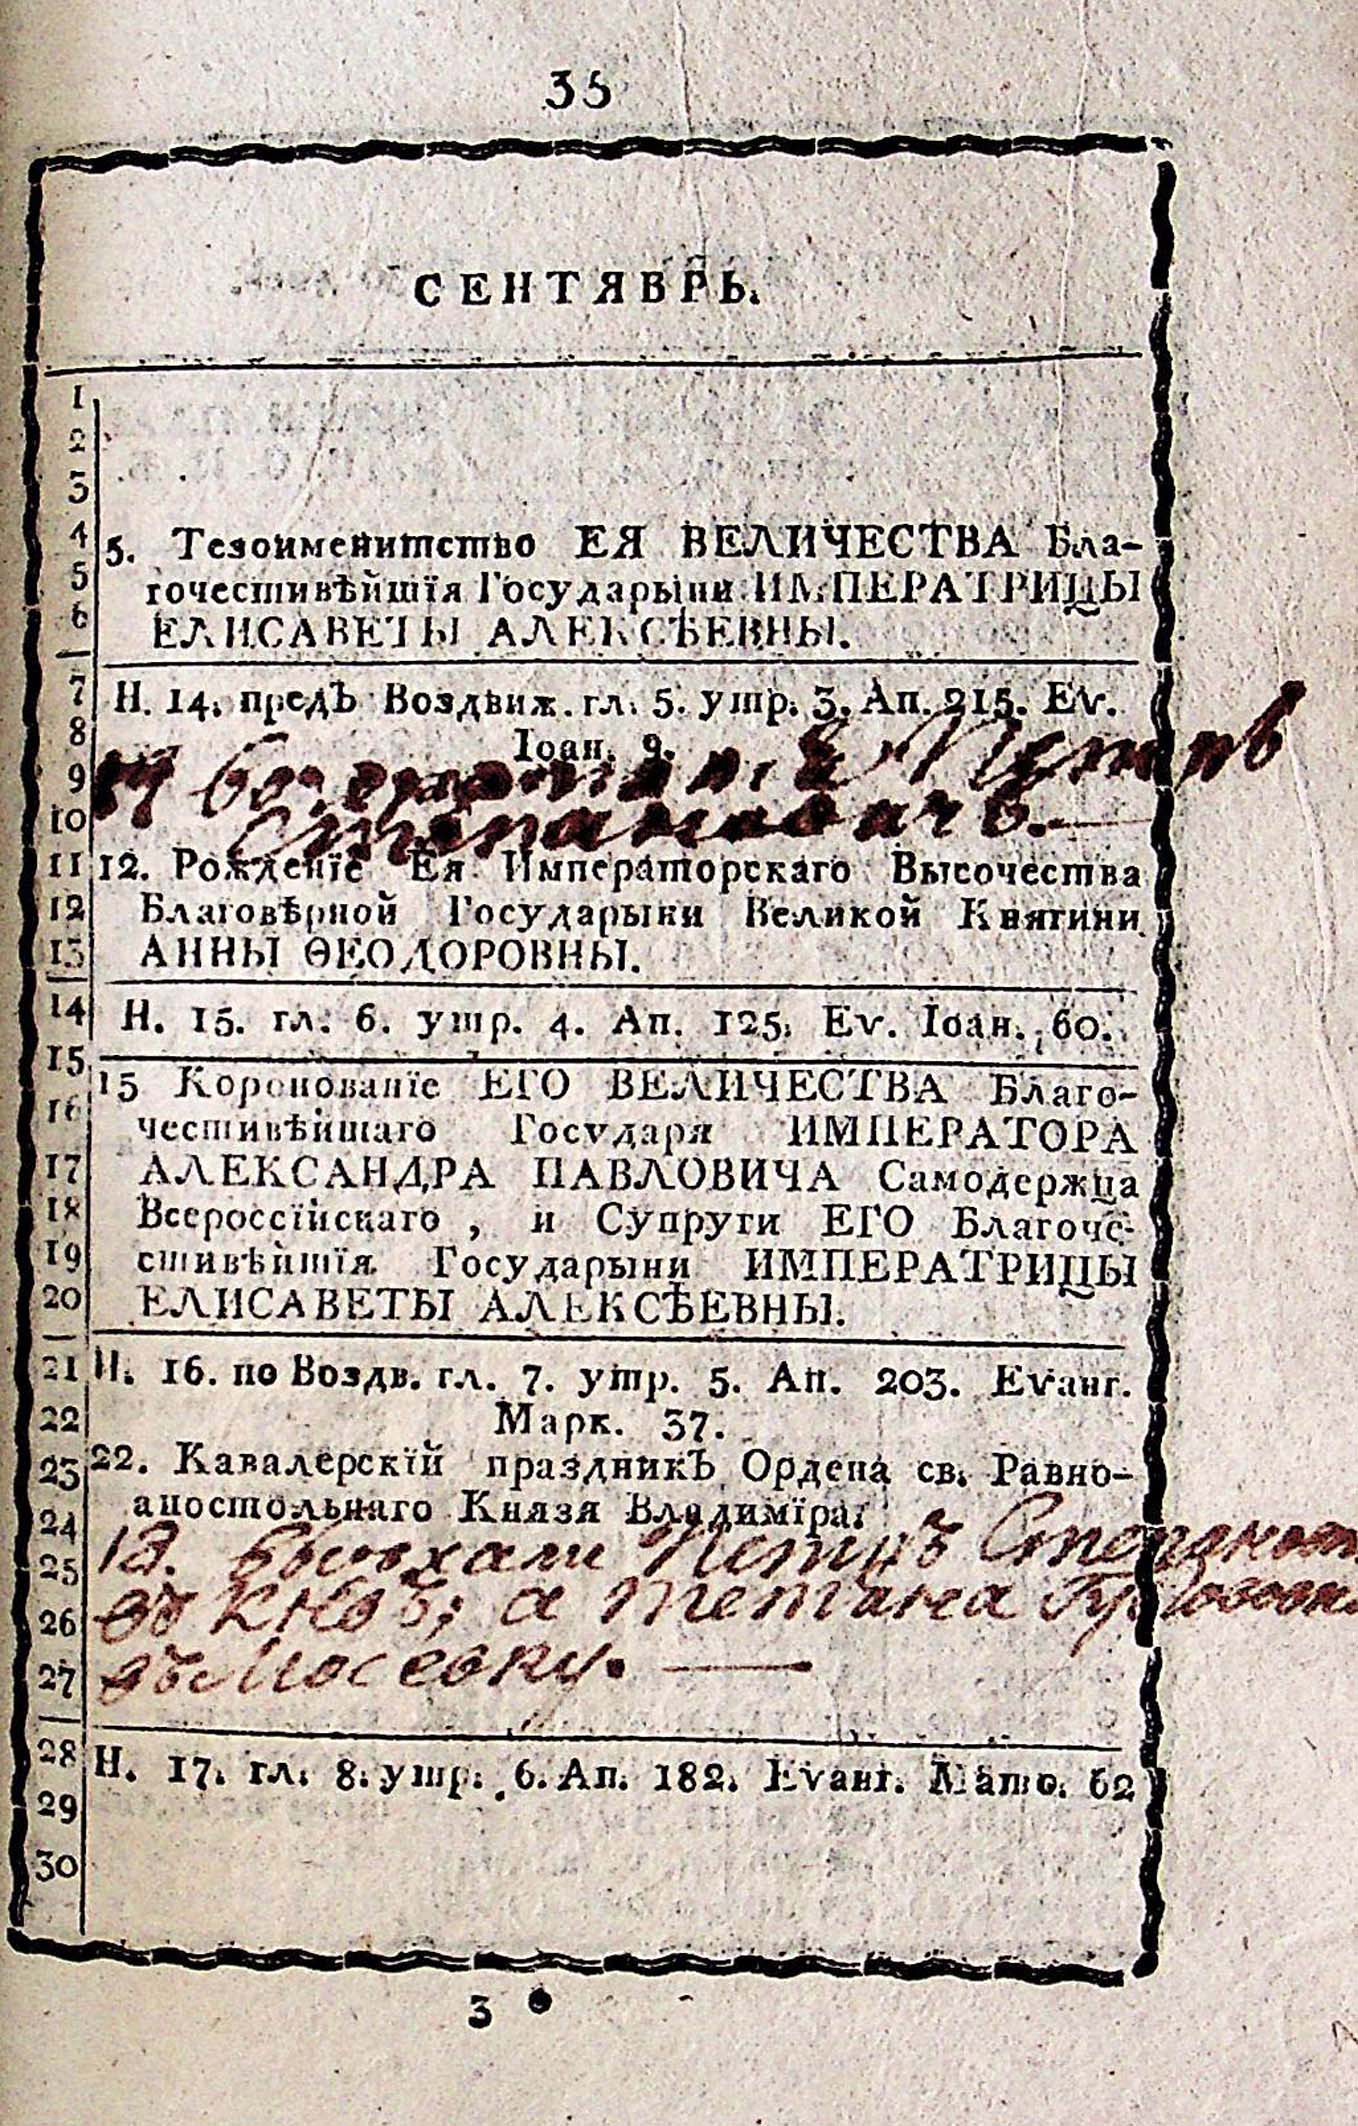 35
СЕНТЯБРЬ.
1
2
3
4
5
6
5. Тезоименитство ЕЯ ВЕЛИЧЕСТВА Бла-
гочестивѣйшїя Государыни ИМПЕРАТРИЦЫ
ЕЛИСАВЕТЫ АЛЕКСѢЕВНЫ.
7
8
9
10
11
12
13
Н. 14. предЪ Воздвиж. гл. 5. утр. 3. Ап. 215. Еѵ.
Іоан. 9.
Петръ
Степановичъ.
12. Рожденїе Ея Императорскаго Высочества
Благовѣрной Государыни Великой Княгини
АННЫ ѲЕОДОРОВНЫ.
14
Н. 15. гл. 6. утр. 4. Ап. 125. Еѵ. Іоан. 60.
15
16
17
18
19
20
15 Коронованїе ЕГО ВЕЛИЧЕСТВА Благо-
честивѣйшаго Государя ИМПЕРАТОРА
АЛЕКСАНДРА ПАВЛОВИЧА Самодержца
Всероссїйскаго , и Супруги ЕГО Благоче-
стивѣйшїя Государыни ИМПЕРАТРИЦЫ
ЕЛИСАВЕТЫ АЛЕКСѢЕВНЫ.
21
22
23
24
25
26
27
Н. 16. по Воздв. гл. 7. утр. 5. Ап. 203. Еѵанг.
Марк. 37.
22. Кавалерскїй праздникЪ Ордена св. Равно-
апостольнаго Князя Владимїра.
выехали Петръ
въ Кіевъ; а
въ Мосевку.
28
29
30
Н. 17. гл. 8. утр. 6. Ап. 182. Еѵанг. Матѳ. 62
3